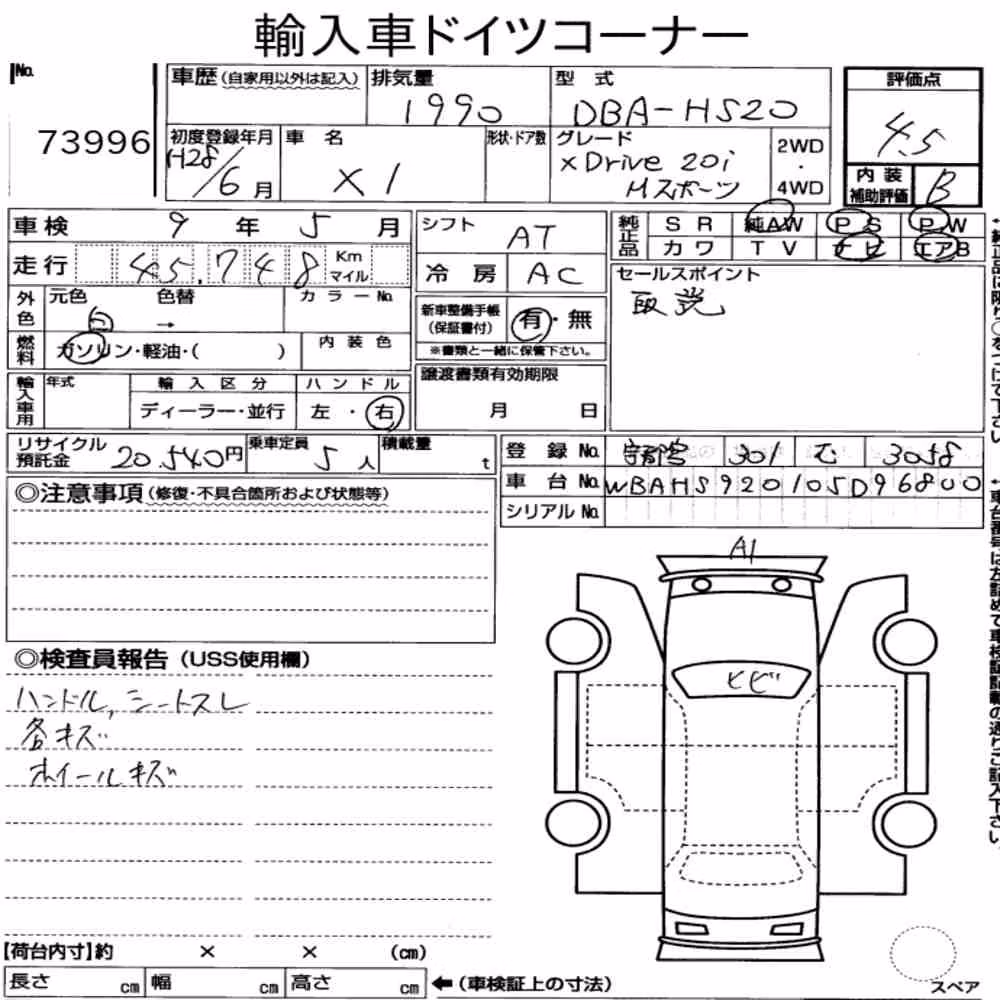 輸入車ドイツコーナー
No.
73996
車歴(自家用以外は記入)
排気量
1990
型 式
DBA-HS20
評価点
4.5
初度登録年月
H28/6月
車 名
X1
形状・ドア数
グレード
xDrive 20i
Mスポーツ
2WD
・
4WD
内装
補助評価
B
車検 9年 5月
シフト AT
純正品
SR 純AW PS PW
カワ TV ナビ エアB
走行 45,748 Km
マイル
冷房 AC
セールスポイント
取説
外色
元色 白
色替 →
カラーNo.
新車整備手帳
(保証書付)
有・無
※書類と一緒に保管下さい。
燃料
ガソリン・軽油・( )
内装色
譲渡書類有効期限
月 日
輸入車用
年式
輸入区分
ディーラー・並行
ハンドル
左・右
リサイクル
預託金 20,540円
乗車定員 5人
積載量 t
登録No. 宇都宮 301 む 3058
車台No. WBAHS920105D96800
シリアルNo.
◎注意事項(修復・不具合箇所および状態等)
A1
ヒビ
◎検査員報告(USS使用欄)
ハンドル,シートスレ
各キズ
ホイールキズ
【荷台内寸】約 × × (cm)
長さ cm 幅 cm 高さ cm ←(車検証上の寸法)
スペア
←純正品に限り○をつけて下さい
←車台番号は左詰めで車検証記載の通りご記入下さい。